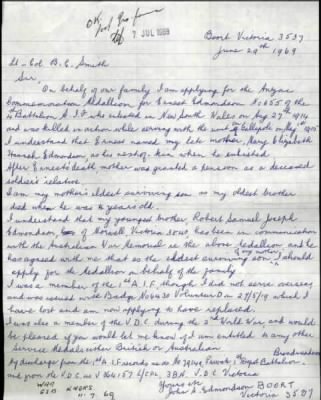 OK
7 JUL 1969
Boort Victoria 3537
June 29th 1969
Lt-Col B. G. Smith
Sir,
On behalf of our family I am applying for the Anzac
Commemoration Medallion for Ernest Edmondson No 655 of the
4th Battalion A.I.F who enlisted in New South Wales on Aug 27th 1914
and was killed in action while serving with the unit at Gallipoli on May 1915
I understand that Ernest named my late mother, Mary Elizabeth
Hannah Edmondson, as his next of kin when he enlisted
After Ernest's death mother was granted a pension as a deceased
soldier's relative.
I am my mother's eldest surviving son as my oldest brother
died when he was years old.
I understand that my youngest brother Robert Samuel Joseph
Edmondson, of Victoria has been in communication
with the Australian War Memorial re the above Medallion and he
has agreed with me that as the eldest surviving son (of my mother) I should
apply for the Medallion on behalf of the family
I was a member of the 1st A.I.F. though I did not serve overseas
and was issued with Badge No Volunteer D on 27/5/19 which I
have lost and am now applying to have replaced.
I was also a member of the V.D.C during the 2nd World War, and would
be pleased if you would let me know if I am entitled to any other
Service Medals either British or Australian
My discharge from the 1st A.I.F. records as No Private 1st Depot Battalion. Broadmeadows
and from the V.D.C. as V 366157 L/CPL 3 BN V.D.C Victoria
Yours etc
John A. Edmondson BOORT
Victoria 3537
11.7.69